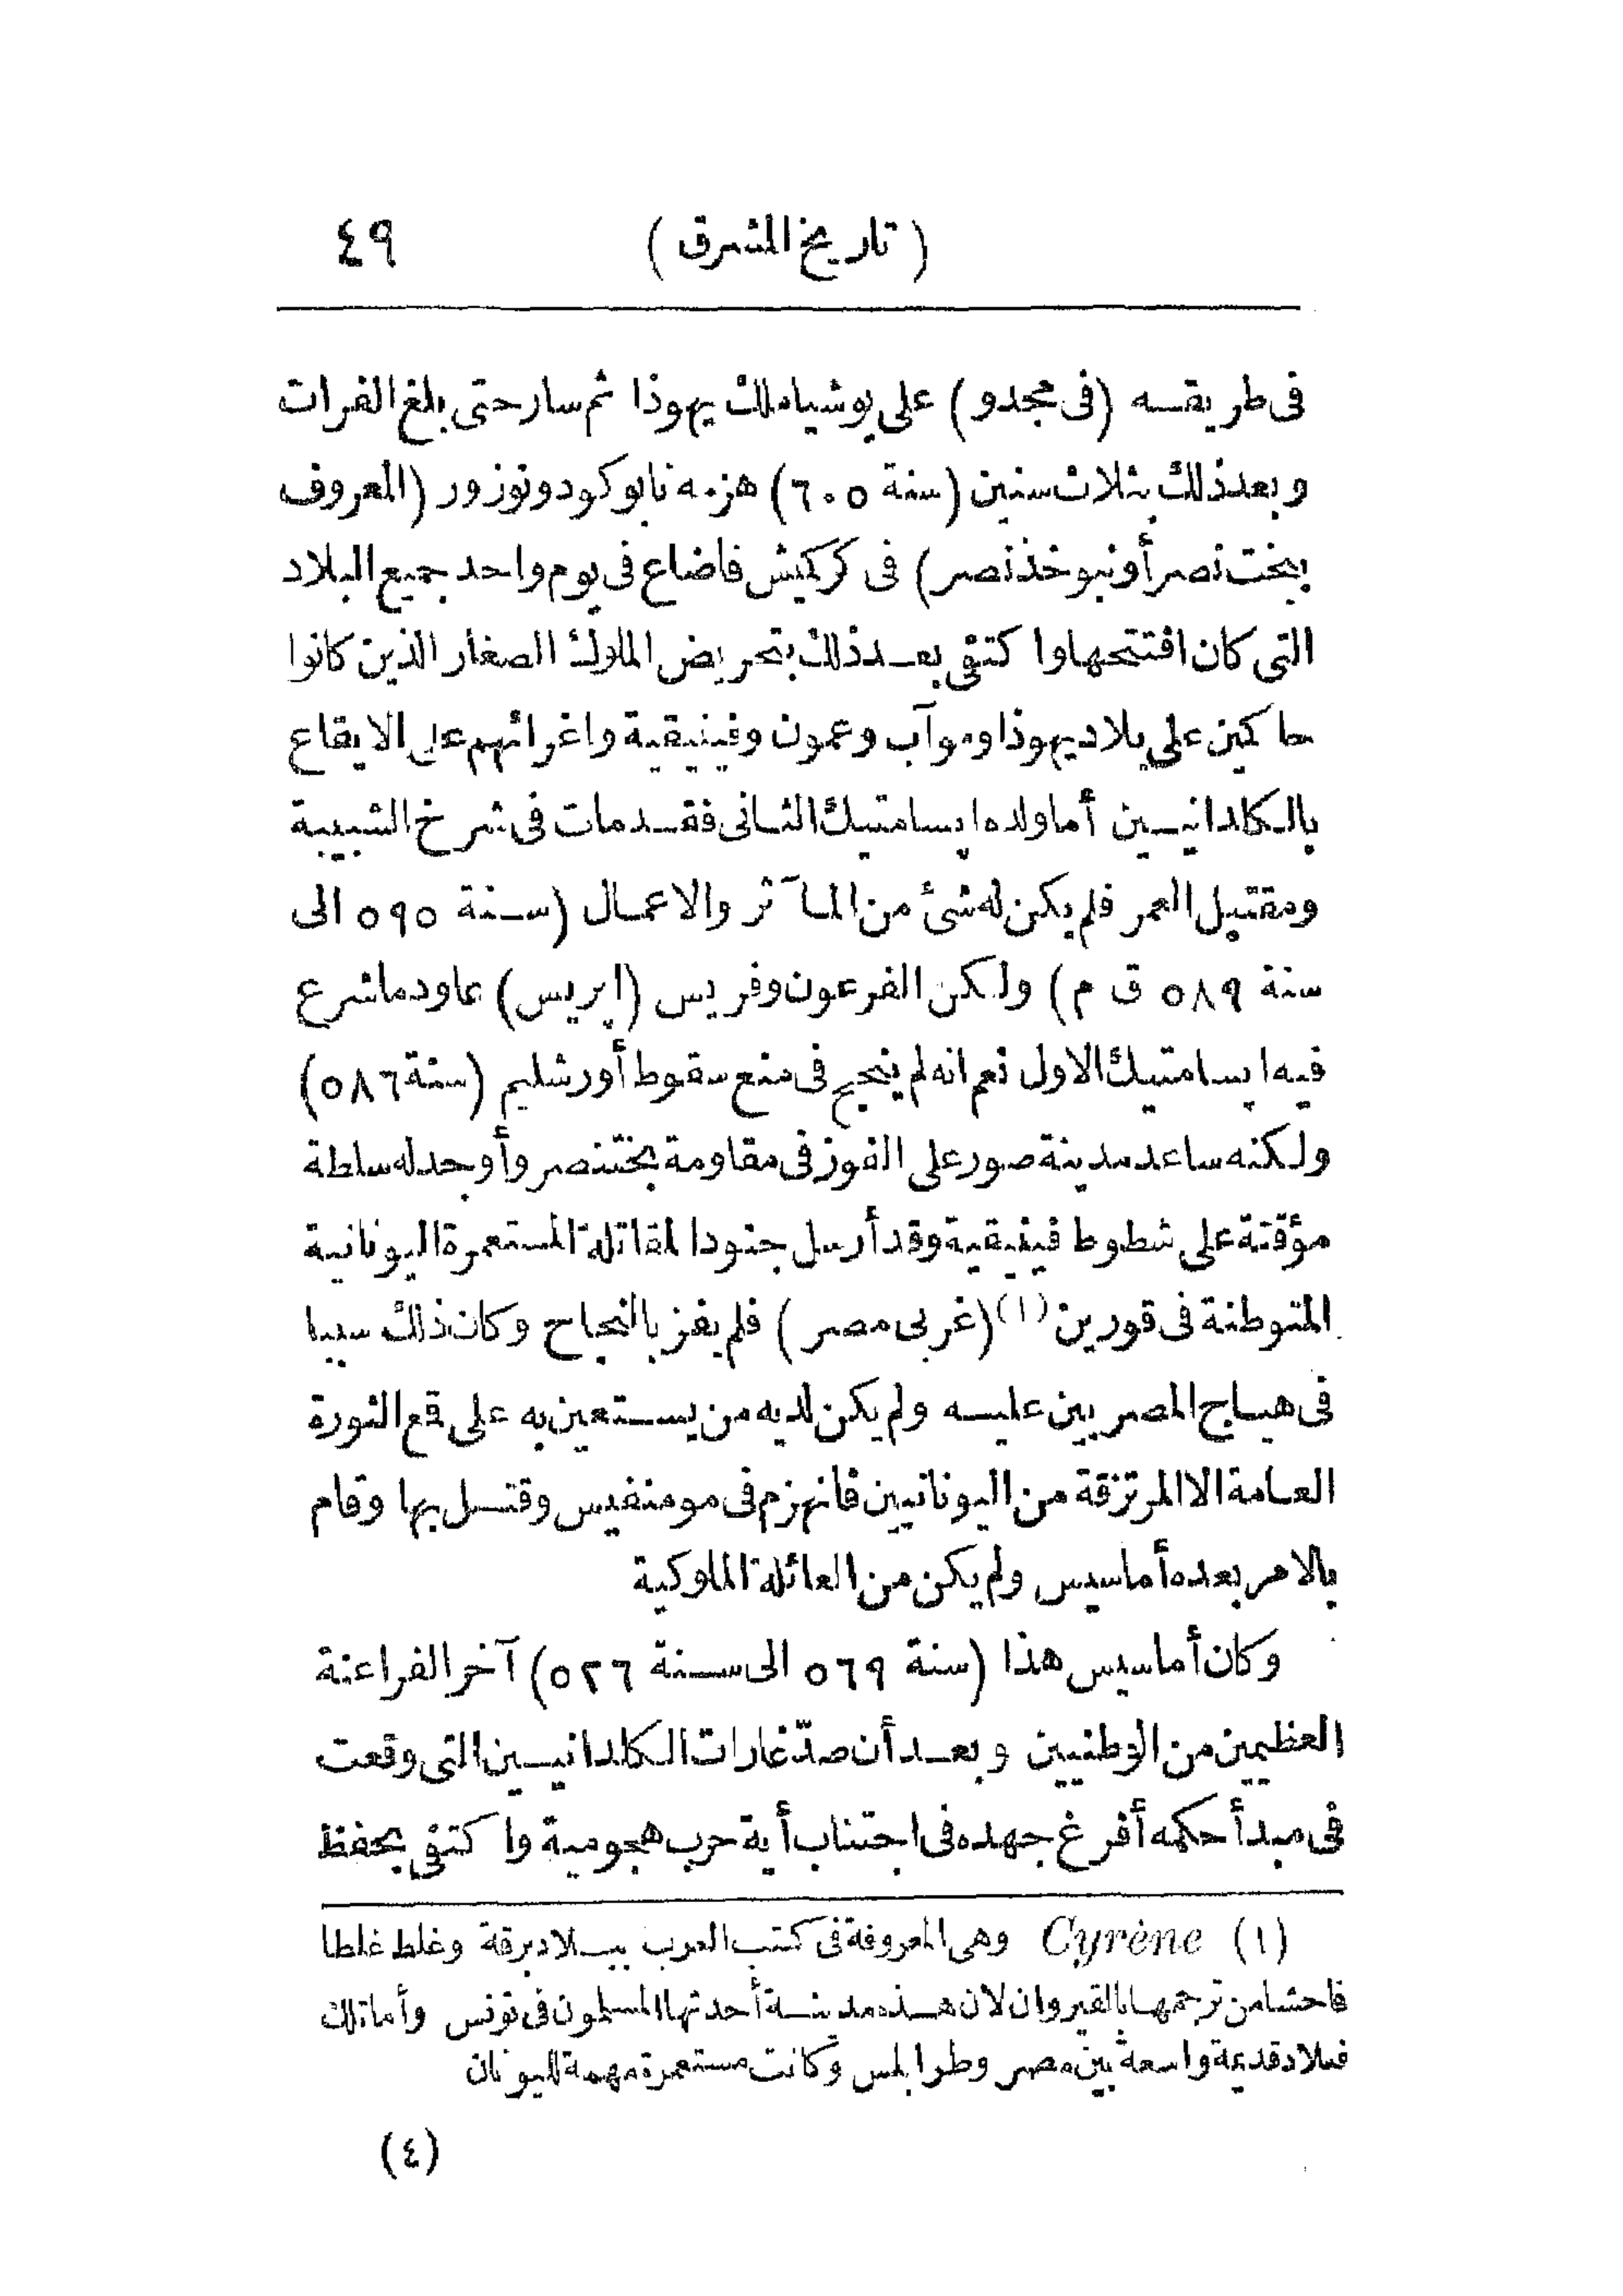 ( تاريخ المشرق ) ٤٩
فى طريقه (فى مجدو) على يوشيا ملك يهوذا ثم سار حتى بلغ الفرات
وبعد ذلك بثلاث سنين (سنة ٦٠٥) هزمه نابو كودونوزور (المعروف
ببخت نصر أو نبوخذ نصر) فى كركميش فاضاع فى يوم واحد جميع البلاد
التى كان افتتحها واكتفى بعد ذلك بتحريض الملوك الصغار الذين كانوا
حاكمين على بلاد يهوذا وموآب وعمون وفينيقية واغرائهم على الايقاع
بالكلدانيين أما ولده ابسامتيك الثانى فقد مات فى شرخ الشبيبة
ومقتبل العمر فلم يكن له شئ من المآثر والاعمال (سنة ٥٩٥ الى
سنة ٥٨٩ ق م) ولكن الفرعون وفريس (اپريس) عاود ما شرع
فيه ابسامتيك الاول نعم انه لم ينجح فى منع سقوط أورشليم (سنة ٥٨٦)
ولكنه ساعد مدينة صور على الفوز فى مقاومة بختنصر وأوجد له سلطة
مؤقتة على شطوط فينيقية وقد أرسل جنودا لمقاتلة المستعمرة اليونانية
المتوطنة فى قورين (١) (غربى مصر) فلم يفز بالنجاح وكان ذلك سببا
فى هياج المصريين عليه ولم يكن لديه من يستعين به على قمع الثورة
العامة الا المرتزقة من اليونانيين فانهزم فى مومنفيس وقتل بها وقام
بالامر بعده أماسيس ولم يكن من العائلة الملوكية
وكان أماسيس هذا (سنة ٥٦٩ الى سنة ٥٢٦) آخر الفراعنة
العظيمين من الوطنيين وبعد أن صدّ غارات الكلدانيين التى وقعت
فى مبدأ حكمه أفرغ جهده فى اجتناب أية حرب هجومية واكتفى بحفظ
(١) Cyrène وهى المعروفة فى كتب العرب ببلاد برقة وغلط غلطا
فاحشا من ترجمها بالقيروان لان هذه مدينة أحدثها المسلمون فى تونس وأما تلك
فبلاد قديمة واسعة بين مصر وطرابلس وكانت مستعمرة مهمة لليونان
(٤)